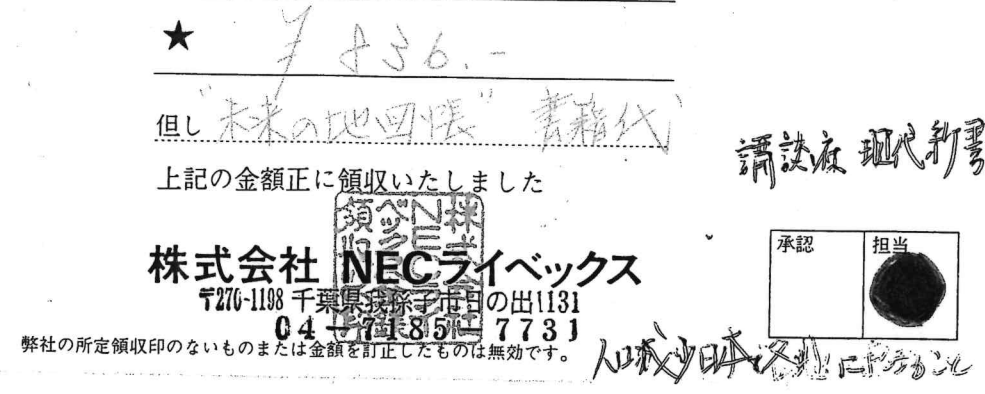 ★ ¥ 836.-
但し "未来の地図帳" 書籍代
講談社 現代新書
上記の金額正に領収いたしました
承認 担当
株式会社 NECライベックス
〒270-1198 千葉県我孫子市日の出1131
04-7185-7731
弊社の所定領収印のないものまたは金額を訂正したものは無効です。
人口減少日本で